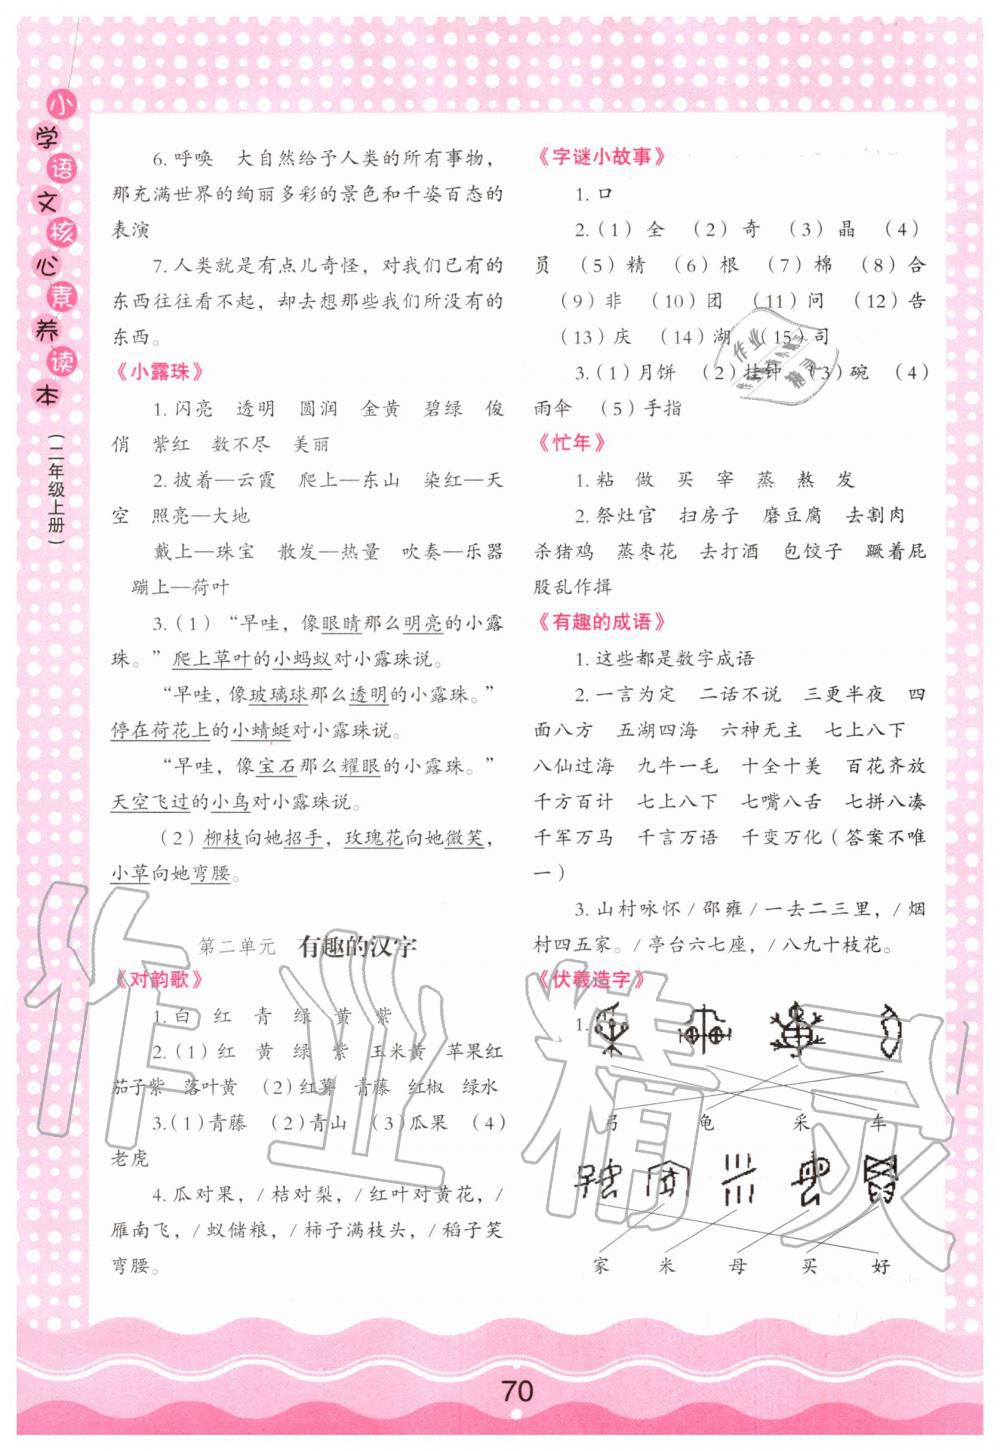 小学语文核心素养读本
（二年级上册）
6. 呼唤 大自然给予人类的所有事物，
那充满世界的绚丽多彩的景色和千姿百态的
表演
7. 人类就是有点儿奇怪，对我们已有的
东西往往看不起，却去想那些我们所没有的
东西。
《小露珠》
1. 闪亮 透明 圆润 金黄 碧绿 俊
俏 紫红 数不尽 美丽
2. 披着—云霞 爬上—东山 染红—天
空 照亮—大地
戴上—珠宝 散发—热量 吹奏—乐器
蹦上—荷叶
3.（1）“早哇，像眼睛那么明亮的小露
珠。”爬上草叶的小蚂蚁对小露珠说。
“早哇，像玻璃球那么透明的小露珠。”
停在荷花上的小蜻蜓对小露珠说。
“早哇，像宝石那么耀眼的小露珠。”
天空飞过的小鸟对小露珠说。
（2）柳枝向她招手，玫瑰花向她微笑，
小草向她弯腰。
第二单元 有趣的汉字
《对韵歌》
1. 白 红 青 绿 黄 紫
2.（1）红 黄 绿 紫 玉米黄 苹果红
茄子紫 落叶黄 （2）红薯 青藤 红椒 绿水
3.（1）青藤 （2）青山 （3）瓜果 （4）
老虎
4. 瓜对果，/ 桔对梨，/ 红叶对黄花，/
雁南飞，/ 蚁储粮，/ 柿子满枝头，/ 稻子笑
弯腰。
《字谜小故事》
1. 口
2.（1）全 （2）奇 （3）晶 （4）
员 （5）精 （6）根 （7）棉 （8）合
（9）非 （10）团 （11）问 （12）告
（13）庆 （14）湖 （15）司
3.（1）月饼 （2）挂钟 （3）碗 （4）
雨伞 （5）手指
《忙年》
1. 粘 做 买 宰 蒸 熬 发
2. 祭灶官 扫房子 磨豆腐 去割肉
杀猪鸡 蒸枣花 去打酒 包饺子 蹶着屁
股乱作揖
《有趣的成语》
1. 这些都是数字成语
2. 一言为定 二话不说 三更半夜 四
面八方 五湖四海 六神无主 七上八下
八仙过海 九牛一毛 十全十美 百花齐放
千方百计 七上八下 七嘴八舌 七拼八凑
千军万马 千言万语 千变万化（答案不唯
一）
3. 山村咏怀 / 邵雍 / 一去二三里，/ 烟
村四五家。/ 亭台六七座，/ 八九十枝花。
《伏羲造字》
1.
弓 龟 采 车
家 米 母 买 好
70
作业精灵